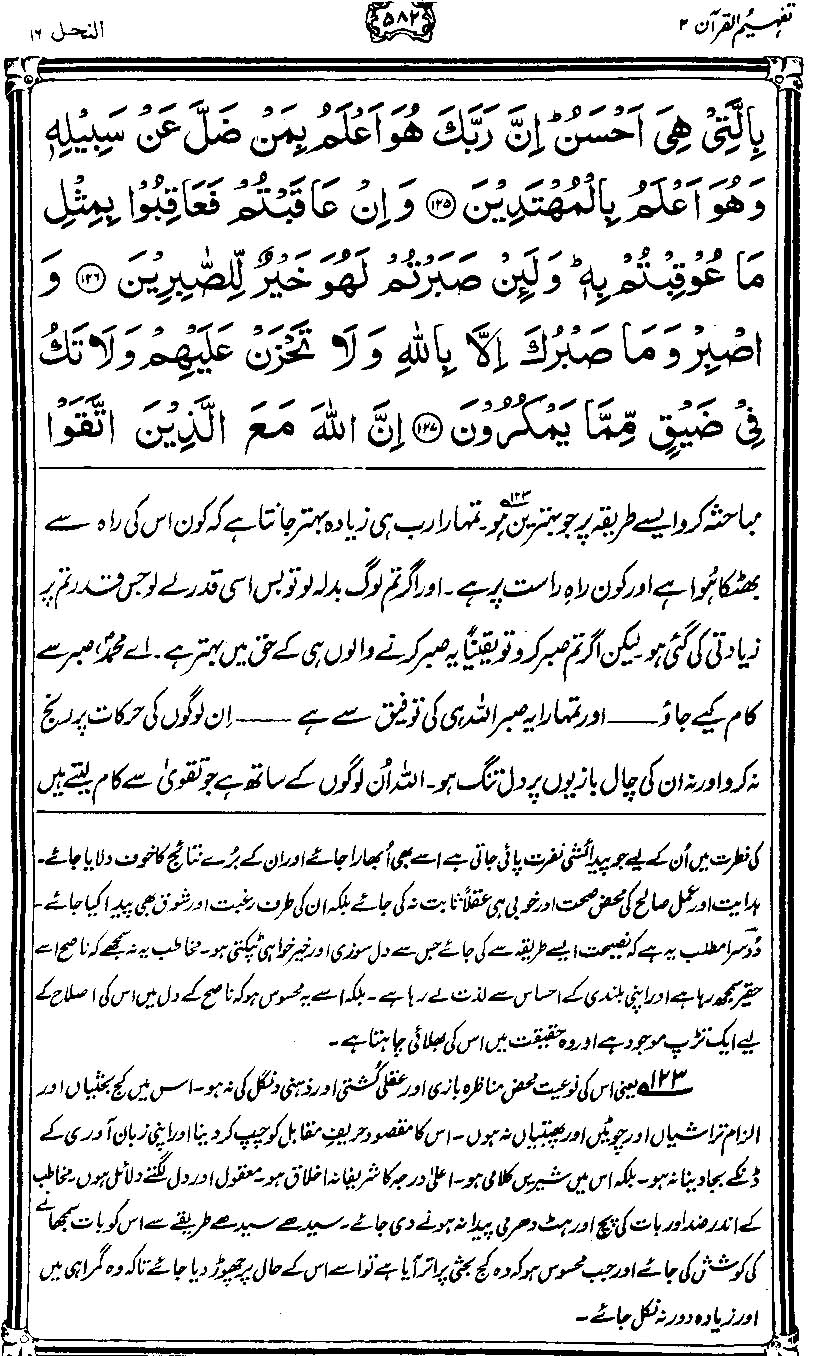 تفہیم القرآن ۲
۵۸۲
النحل ۱۶
بِالَّتِیْ هِیَ اَحْسَنُ ؕ اِنَّ رَبَّكَ هُوَ اَعْلَمُ بِمَنْ ضَلَّ عَنْ سَبِیْلِهٖ
وَهُوَ اَعْلَمُ بِالْمُهْتَدِیْنَ ﴿۱۲۵﴾ وَاِنْ عَاقَبْتُمْ فَعَاقِبُوْا بِمِثْلِ
مَا عُوْقِبْتُمْ بِهٖ ؕ وَلَىِٕنْ صَبَرْتُمْ لَهُوَ خَیْرٌ لِّلصّٰبِرِیْنَ ﴿۱۲۶﴾ وَ
اصْبِرْ وَمَا صَبْرُكَ اِلَّا بِاللّٰهِ وَلَا تَحْزَنْ عَلَیْهِمْ وَلَا تَكُ
فِیْ ضَیْقٍ مِّمَّا یَمْكُرُوْنَ ﴿۱۲۷﴾ اِنَّ اللّٰهَ مَعَ الَّذِیْنَ اتَّقَوْا
مباحثہ کرو ایسے طریقہ پر جو بہترین ہو۔۱۲۳ تمہارا رب ہی زیادہ بہتر جانتا ہے کہ کون اس کی راہ سے
بھٹکا ہُوا ہے اور کون راہِ راست پر ہے۔ اور اگر تم لوگ بدلہ لو تو بس اسی قدر لے لو جس قدر تم پر
زیادتی کی گئی ہو لیکن اگر تم صبر کرو تو یقیناً یہ صبر کرنے والوں ہی کے حق میں بہتر ہے۔ اے محمدؐ، صبر سے
کام کیے جاؤ —— اور تمہارا یہ صبر اللہ ہی کی توفیق سے ہے —— اِن لوگوں کی حرکات پر رنج
نہ کرو اور نہ ان کی چال بازیوں پر دل تنگ ہو۔ اللہ اُن لوگوں کے ساتھ ہے جو تقویٰ سے کام لیتے ہیں
کی فطرت میں اُن کے لیے جو پیدائشی نفرت پائی جاتی ہے اسے بھی اُبھارا جائے اور ان کے بُرے نتائج کا خوف دلایا جائے۔
ہدایت اور عمل صالح کی محض صحت اور خوبی ہی عقلاً ثابت نہ کی جائے بلکہ ان کی طرف رغبت اور شوق بھی پیدا کیا جائے۔
دُوسرا مطلب یہ ہے کہ نصیحت ایسے طریقہ سے کی جائے جس سے دل سوزی اور خیر خواہی ٹپکتی ہو۔ مخاطب یہ نہ سمجھے کہ ناصح اسے
حقیر سمجھ رہا ہے اور اپنی بلندی کے احساس سے لذت لے رہا ہے۔ بلکہ اسے یہ محسوس ہو کہ ناصح کے دل میں اس کی اصلاح کے
لیے ایک تڑپ موجود ہے اور وہ حقیقت میں اس کی بھلائی چاہتا ہے۔
۱۲۳ یعنی اس کی نوعیت محض مناظرہ بازی اور عقلی کُشتی اور ذہنی دنگل کی نہ ہو۔ اس میں کج بحثیاں اور
الزام تراشیاں اور چوٹیں اور پھبتیاں نہ ہوں۔ اس کا مقصود حریفِ مقابل کو چپ کر دینا اور اپنی زبان آوری کے
ڈنکے بجا دینا نہ ہو۔ بلکہ اس میں شیریں کلامی ہو۔ اعلیٰ درجہ کا شریفانہ اخلاق ہو۔ معقول اور دل لگتے دلائل ہوں۔ مخاطب
کے اندر ضد اور بات کی پچ اور ہٹ دھرمی پیدا نہ ہونے دی جائے۔ سیدھے سیدھے طریقے سے اس کو بات سمجھانے
کی کوشش کی جائے اور جب محسوس ہو کہ وہ کج بحثی پر اتر آیا ہے تو اسے اس کے حال پر چھوڑ دیا جائے تاکہ وہ گمراہی میں
اور زیادہ دور نہ نکل جائے۔